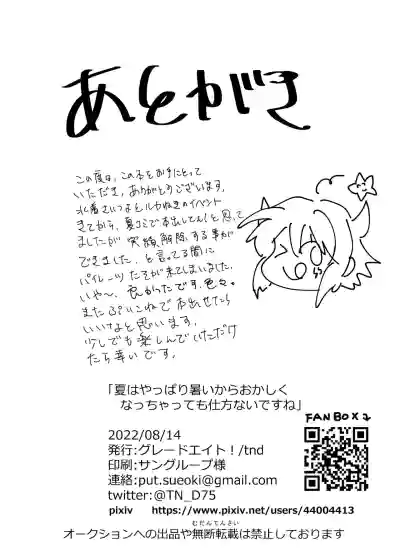 あとがき
この度は、この本をお手にとって
いただき、ありがとうございます。
水着さいつよとルカねきのイベント
きてから、夏コミで本出してん!と思って
ましたが 実績解除する事が
できました、と言ってる間に
パイレーツ たそが来てしまいました。
いや〜、良かったです、色々。
またぷいこねで本出せたら
いいなと思います。
少しでも楽しんでいただけ
たら幸いです。
FANBOX
「夏はやっぱり暑いからおかしく
なっちゃっても仕方ないですね」
2022/08/14
発行:グレードエイト!/tnd
印刷:サングループ様
連絡:put.sueoki@gmail.com
twitter:@TN_D75
pixiv https://www.pixiv.net/users/44004413
むだんてんさい
オークションへの出品や無断転載は禁止しております